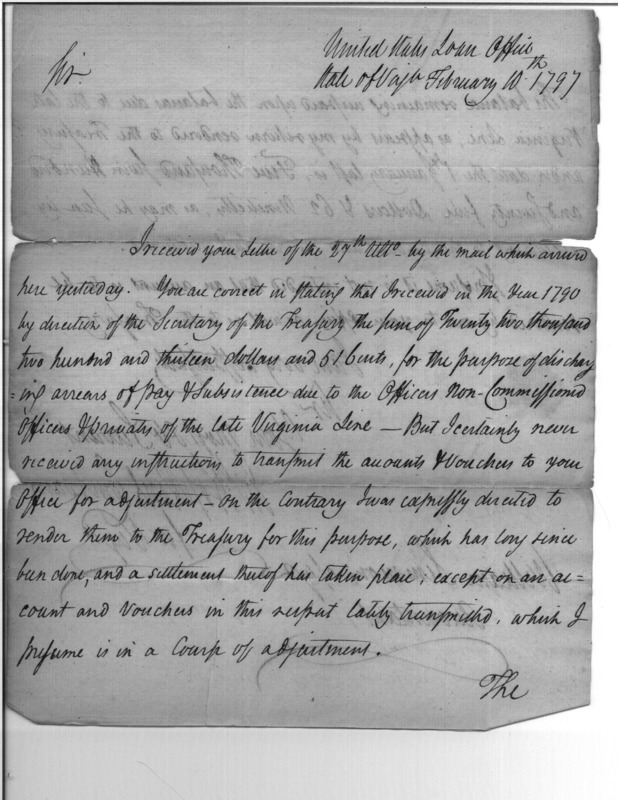 United States Loan Office
State of Virg'a February 10th 1797
Sir
I received your Letter of the 27th Ulto by the mail which arrived
here yesterday. You are correct in stating that I received in the Year 1790
by direction of the Secretary of the Treasury the sum of Twenty two thousand
two hundred and thirteen dollars and 51 Cents, for the purpose of discharg
=ing arrears of pay & Subsistence due to the Officers Non-Commissioned
Officers & privates of the late Virginia Line — But I certainly never
received any instructions to transmit the accounts & Vouchers to your
Office for adjustment — on the Contrary I was expressly directed to
render them to the Treasury for this purpose, which has long since
been done, and a settlement thereof has taken place; except on an ac=
count and Vouchers in this respect lately transmitted, which I
presume is in a Course of adjustment.
The